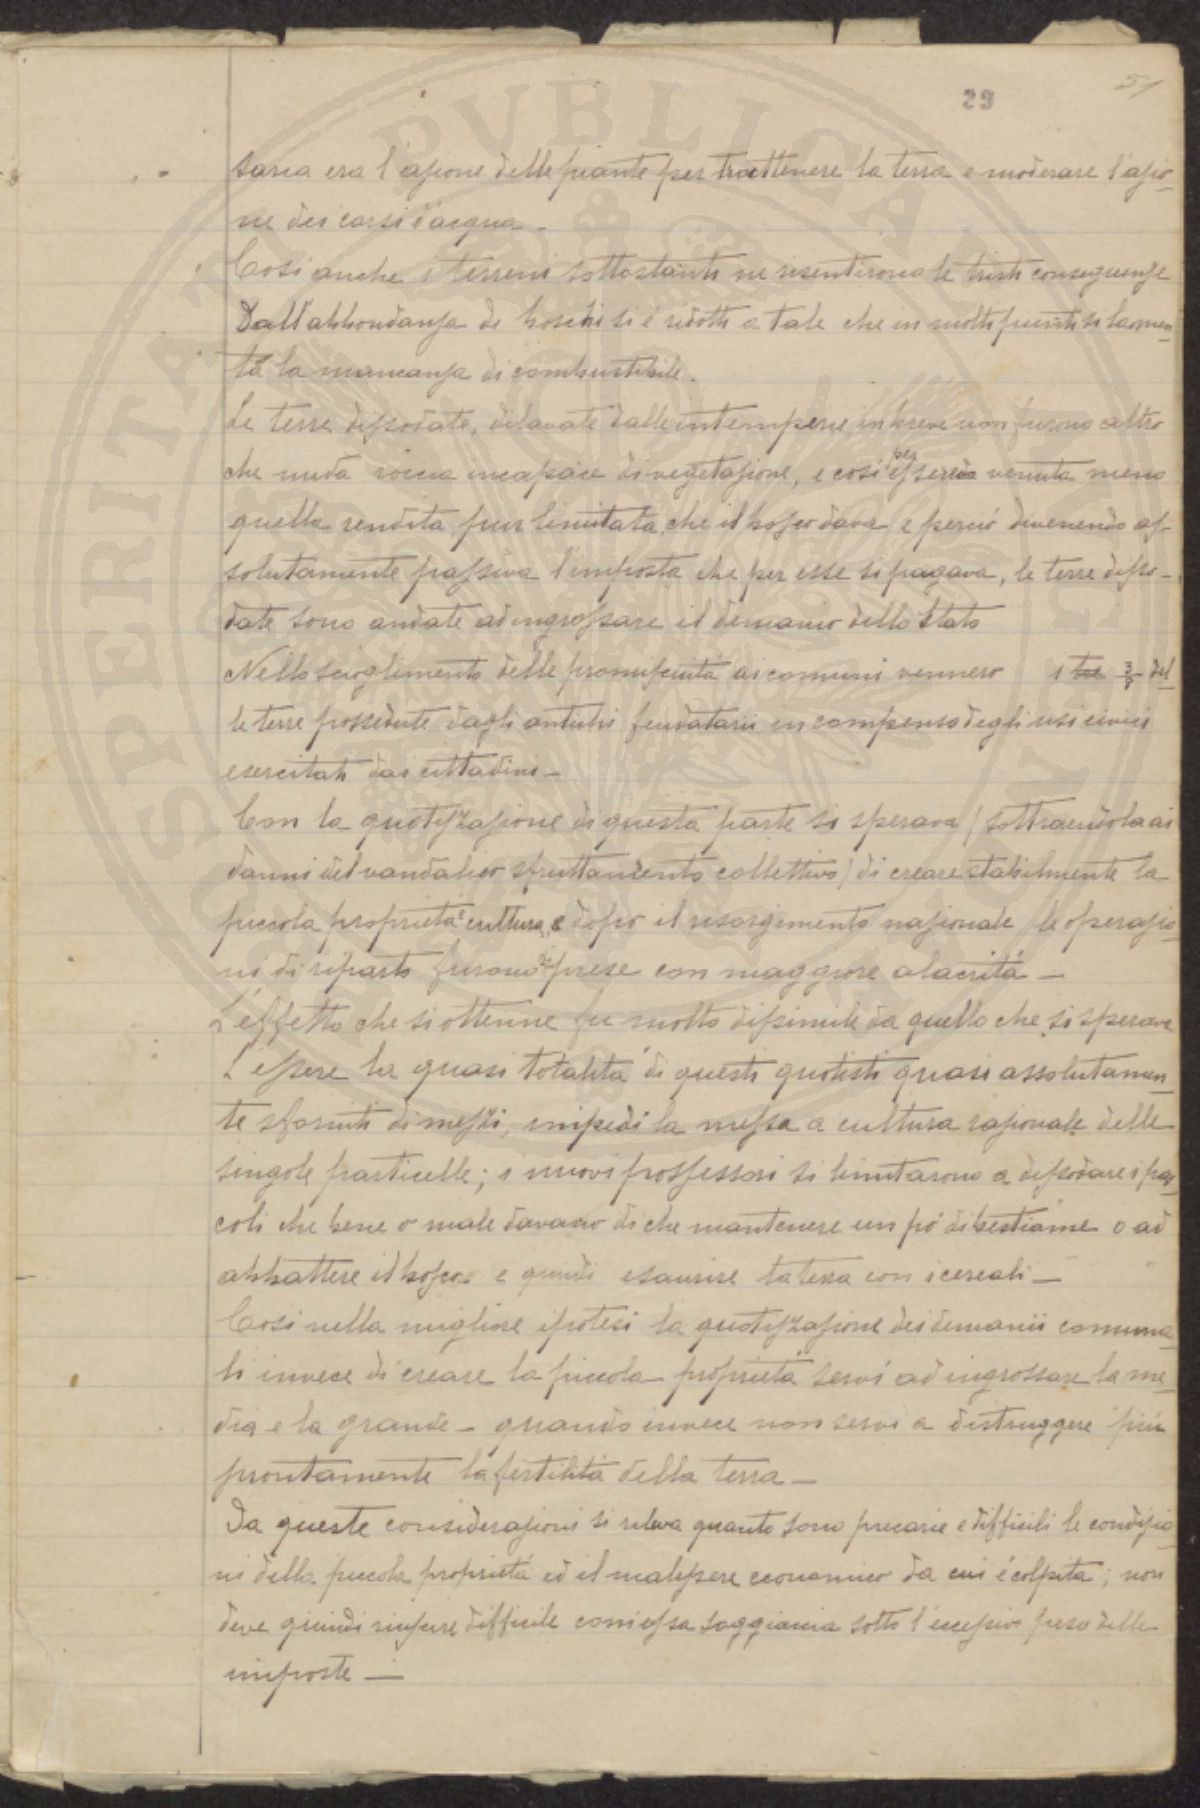 29
51
saria era l'azione delle piante per trattenere la terra e moderare l'azio-
ne dei corsi d'acqua -
Così anche i terreni sottostanti ne risentirono le tristi conseguenze
Dall'abbondanza di boschi si è ridotti a tale che in molti punti si lamen-
ta la mancanza di combustibile.
Le terre dissodate, dilavate dalle intemperie in breve non furono altro
che nuda roccia incapace di vegetazione, e così per essere venuta meno
quella rendita pur limitata che il bosco dava e perciò divenendo as-
solutamente passiva l'imposta che per esse si pagava, le terre disso-
date sono andate ad ingrossare il demanio dello Stato
Nello scioglimento delle promiscuità ai comuni vennero i tre del
le terre possedute dagli antichi feudatarii in compenso degli usi civici
esercitati dai cittadini -
Con la quotizzazione di questa parte si sperava (sottraendola ai
danni del vandalico sfruttamento collettivo) di creare stabilmente la
piccola proprietà e cultura, e dopo il risorgimento nazionale le operazio-
ni di riparto furono riprese con maggiore alacrità -
L'effetto che si ottenne fu molto dissimile da quello che si sperava
L'essere la quasi totalità di questi quotisti quasi assolutamen-
te sforniti di mezzi, impedì la messa a cultura razionale delle
singole particelle; i nuovi possessori si limitarono a dissodare i pas-
coli che bene o male davano di che mantenere un pò di bestiame o ad
abbattere il bosco e quindi esaurire la terra con i cereali -
Così nella migliore ipotesi la quotizzazione dei demanii comuna-
li invece di creare la piccola proprietà servì ad ingrossare la me-
dia e la grande - quando invece non servì a distruggere più
prontamente la fertilità della terra -
Da queste considerazioni si rileva quanto sono precarie e difficili le condizio-
ni della piccola proprietà ed il malessere economico da cui è colpita; non
deve quindi riuscire difficile com'essa soggiaccia sotto l'eccessivo peso delle
imposte -